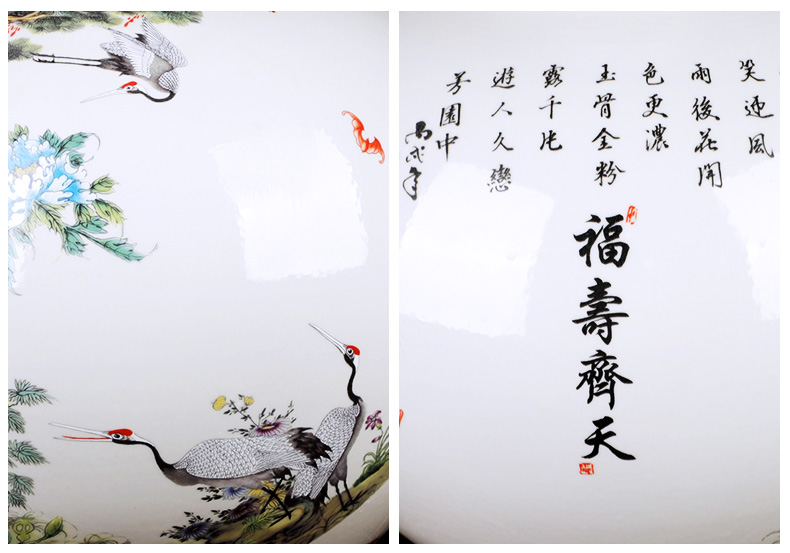 笑迎風
雨後花開
色更濃
玉骨金粉
露千朶
遊人久戀
芳園中
丙戌年
福壽齊天